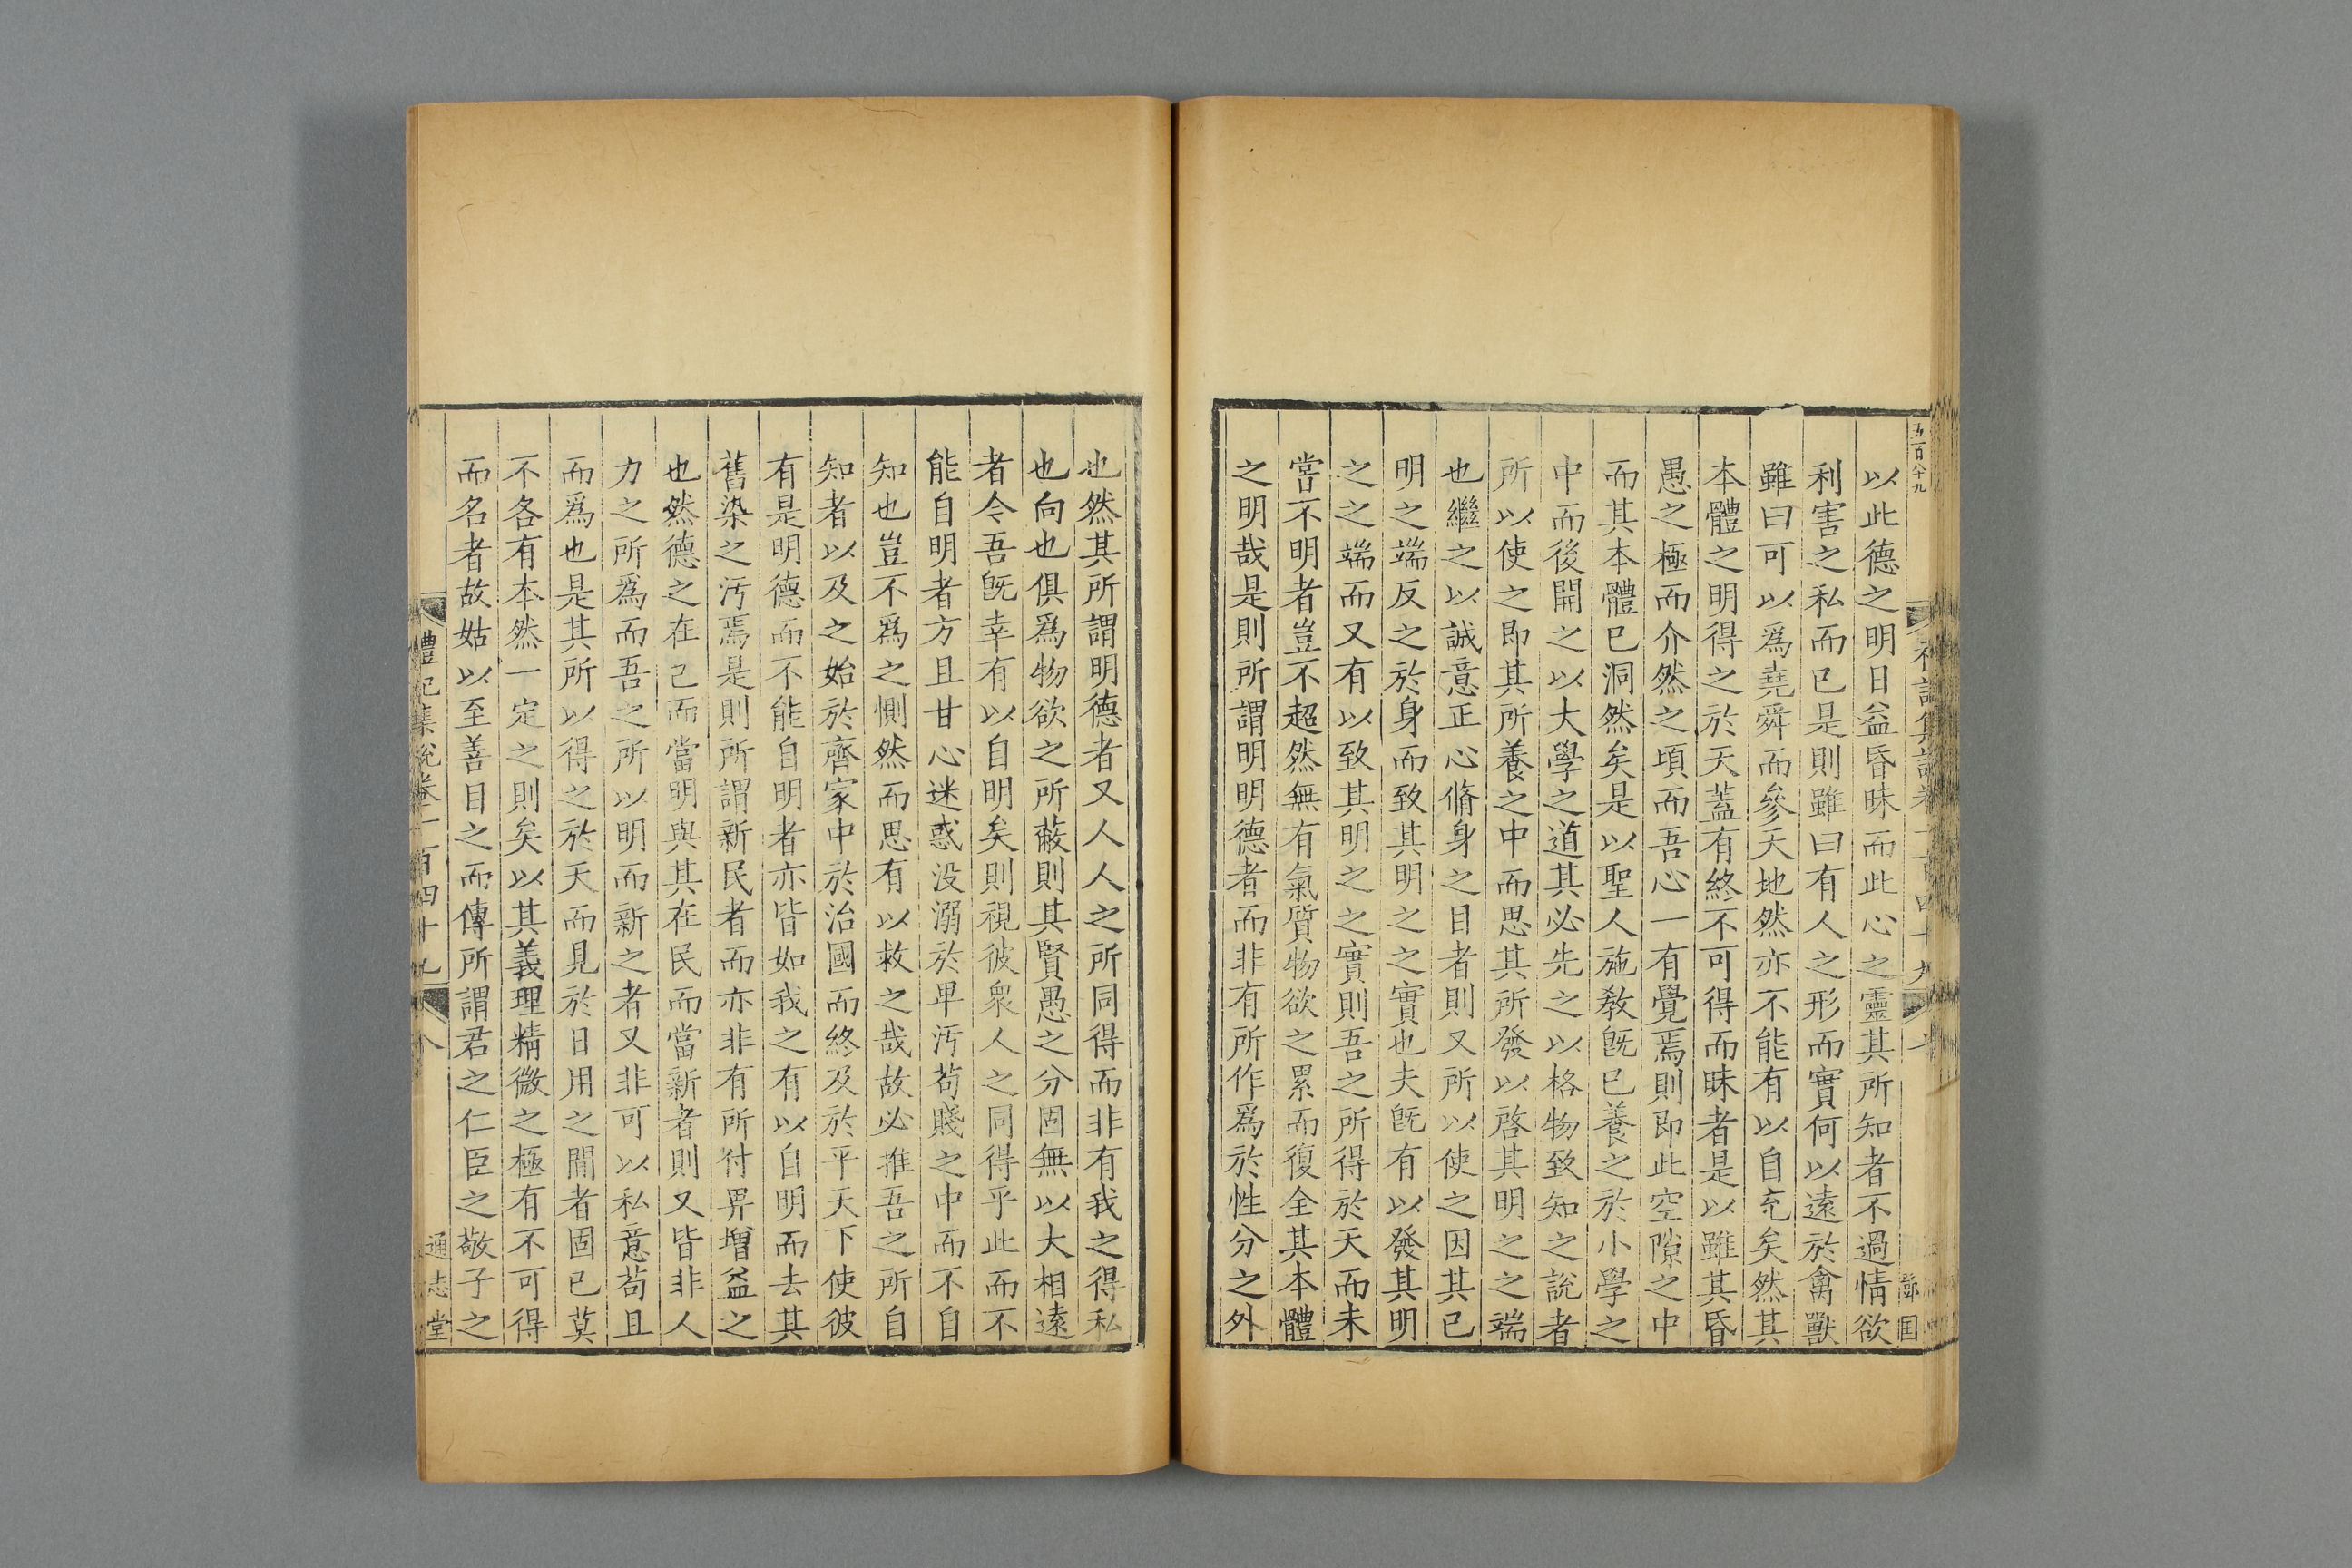 五百八十九
以此德之明日益昏昧而此心之靈其所知者不過情欲
利害之私而已是則雖曰有人之形而實何以遠於禽獸
雖曰可以爲堯舜而參天地然亦不能有以自充矣然其
本體之明得之於天蓋有終不可得而昧者是以雖其昏
愚之極而介然之頃而吾心一有覺焉則即此空隙之中
而其本體已洞然矣是以聖人施教旣已養之於小學之
中而後開之以大學之道其必先之以格物致知之說者
所以使之即其所養之中而思其所發以啓其明之之端
也繼之以誠意正心脩身之目者則又所以使之因其已
明之端反之於身而致其明之之實也夫旣有以發其明
之之端而又有以致其明之之實則吾之所得於天而未
嘗不明者豈不超然無有氣質物欲之累而復全其本體
之明哉是則所謂明明德者而非有所作爲於性分之外
也然其所謂明德者又人人之所同得而非有我之得私
也向也俱爲物欲之所蔽則其賢愚之分固無以大相遠
者今吾旣幸有以自明矣則視彼衆人之同得乎此而不
能自明者方且甘心迷惑没溺於卑汚苟賤之中而不自
知也豈不爲之惻然而思有以救之哉故必推吾之所自
知者以及之始於齊家中於治國而終及於平天下使彼
有是明德而不能自明者亦皆如我之有以自明而去其
舊染之汚焉是則所謂新民者而亦非有所付畀增益之
也然德之在己而當明與其在民而當新者則又皆非人
力之所爲而吾之所以明而新之者又非可以私意苟且
而爲也是其所以得之於天而見於日用之間者固已莫
不各有本然一定之則矣以其義理精微之極有不可得
而名者故姑以至善目之而傳所謂君之仁臣之敬子之
禮記集說卷一百四十九
八
通志堂